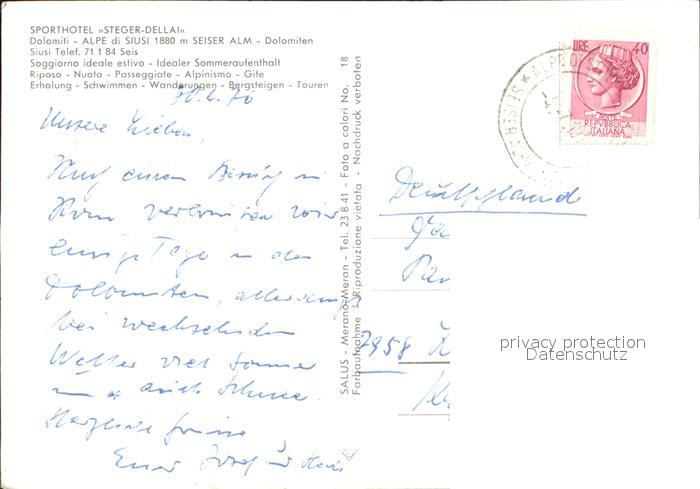 SPORTHOTEL »STEGER-DELLAI«
Dolomiti - ALPE di SIUSI 1880 m SEISER ALM - Dolomiten
Siusi Telef. 71 1 84 Seis
Soggiorno ideale estivo - Idealer Sommeraufenthalt
Riposo - Nuoto - Passeggiate - Alpinismo - Gite
Erholung - Schwimmen - Wanderungen - Bergsteigen - Touren
Unsere Lieben,
Auf einen Besuch in
Rom verbringen wir
einige Tage in den
Dolomiten, allerdings
bei wechselndem
Wetter viel Sonne
auch Schnee.
Herzliche Grüsse
Euer Josef
SALUS - Merano-Meran - Tel. 23 8 41 - Foto a colori No. 18
Farbaufnahme - Riproduzione vietata - Nachdruck verboten
LIRE 40
POSTE
REPVBBLICA
ITALIANA
SEISER
Deutschland
7958
privacy protection
Datenschutz